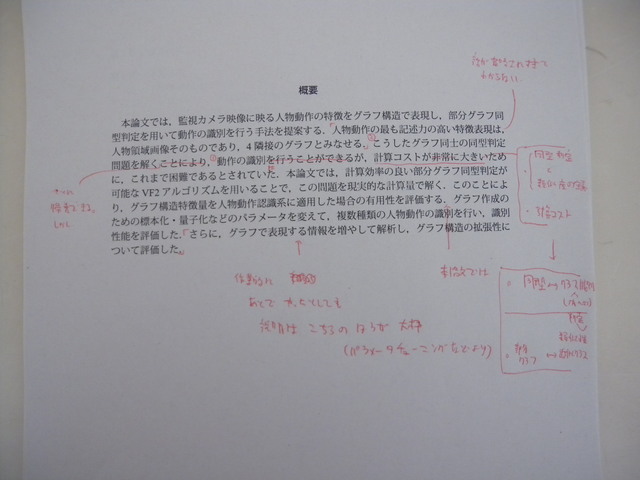 概要
本論文では，監視カメラ映像に映る人物動作の特徴をグラフ構造で表現し，部分グラフ同
型判定を用いて動作の識別を行う手法を提案する．人物動作の最も記述力の高い特徴表現は，
人物領域画像そのものであり，4 隣接のグラフとみなせる．こうしたグラフ同士の同型判定
問題を解くことにより，動作の識別を行うことができるが，計算コストが非常に大きいため
に，これまで困難であるとされていた．本論文では，計算効率の良い部分グラフ同型判定が
可能な VF2 アルゴリズムを用いることで，この問題を現実的な計算量で解く．このことによ
り，グラフ構造特徴量を人物動作認識系に適用した場合の有用性を評価する．グラフ作成の
ための標本化・量子化などのパラメータを変えて，複数種類の人物動作の識別を行い，識別
性能を評価した．さらに，グラフで表現する情報を増やして解析し，グラフ構造の拡張性に
ついて評価した．
同型判定
計算コスト
本論文では
あとで
説明は こちらの ほうが 大切
(パラメータチューニングなどより)
同型
部分
グラフ